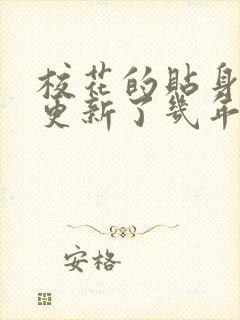 校花的贴身
更新了几年
安格